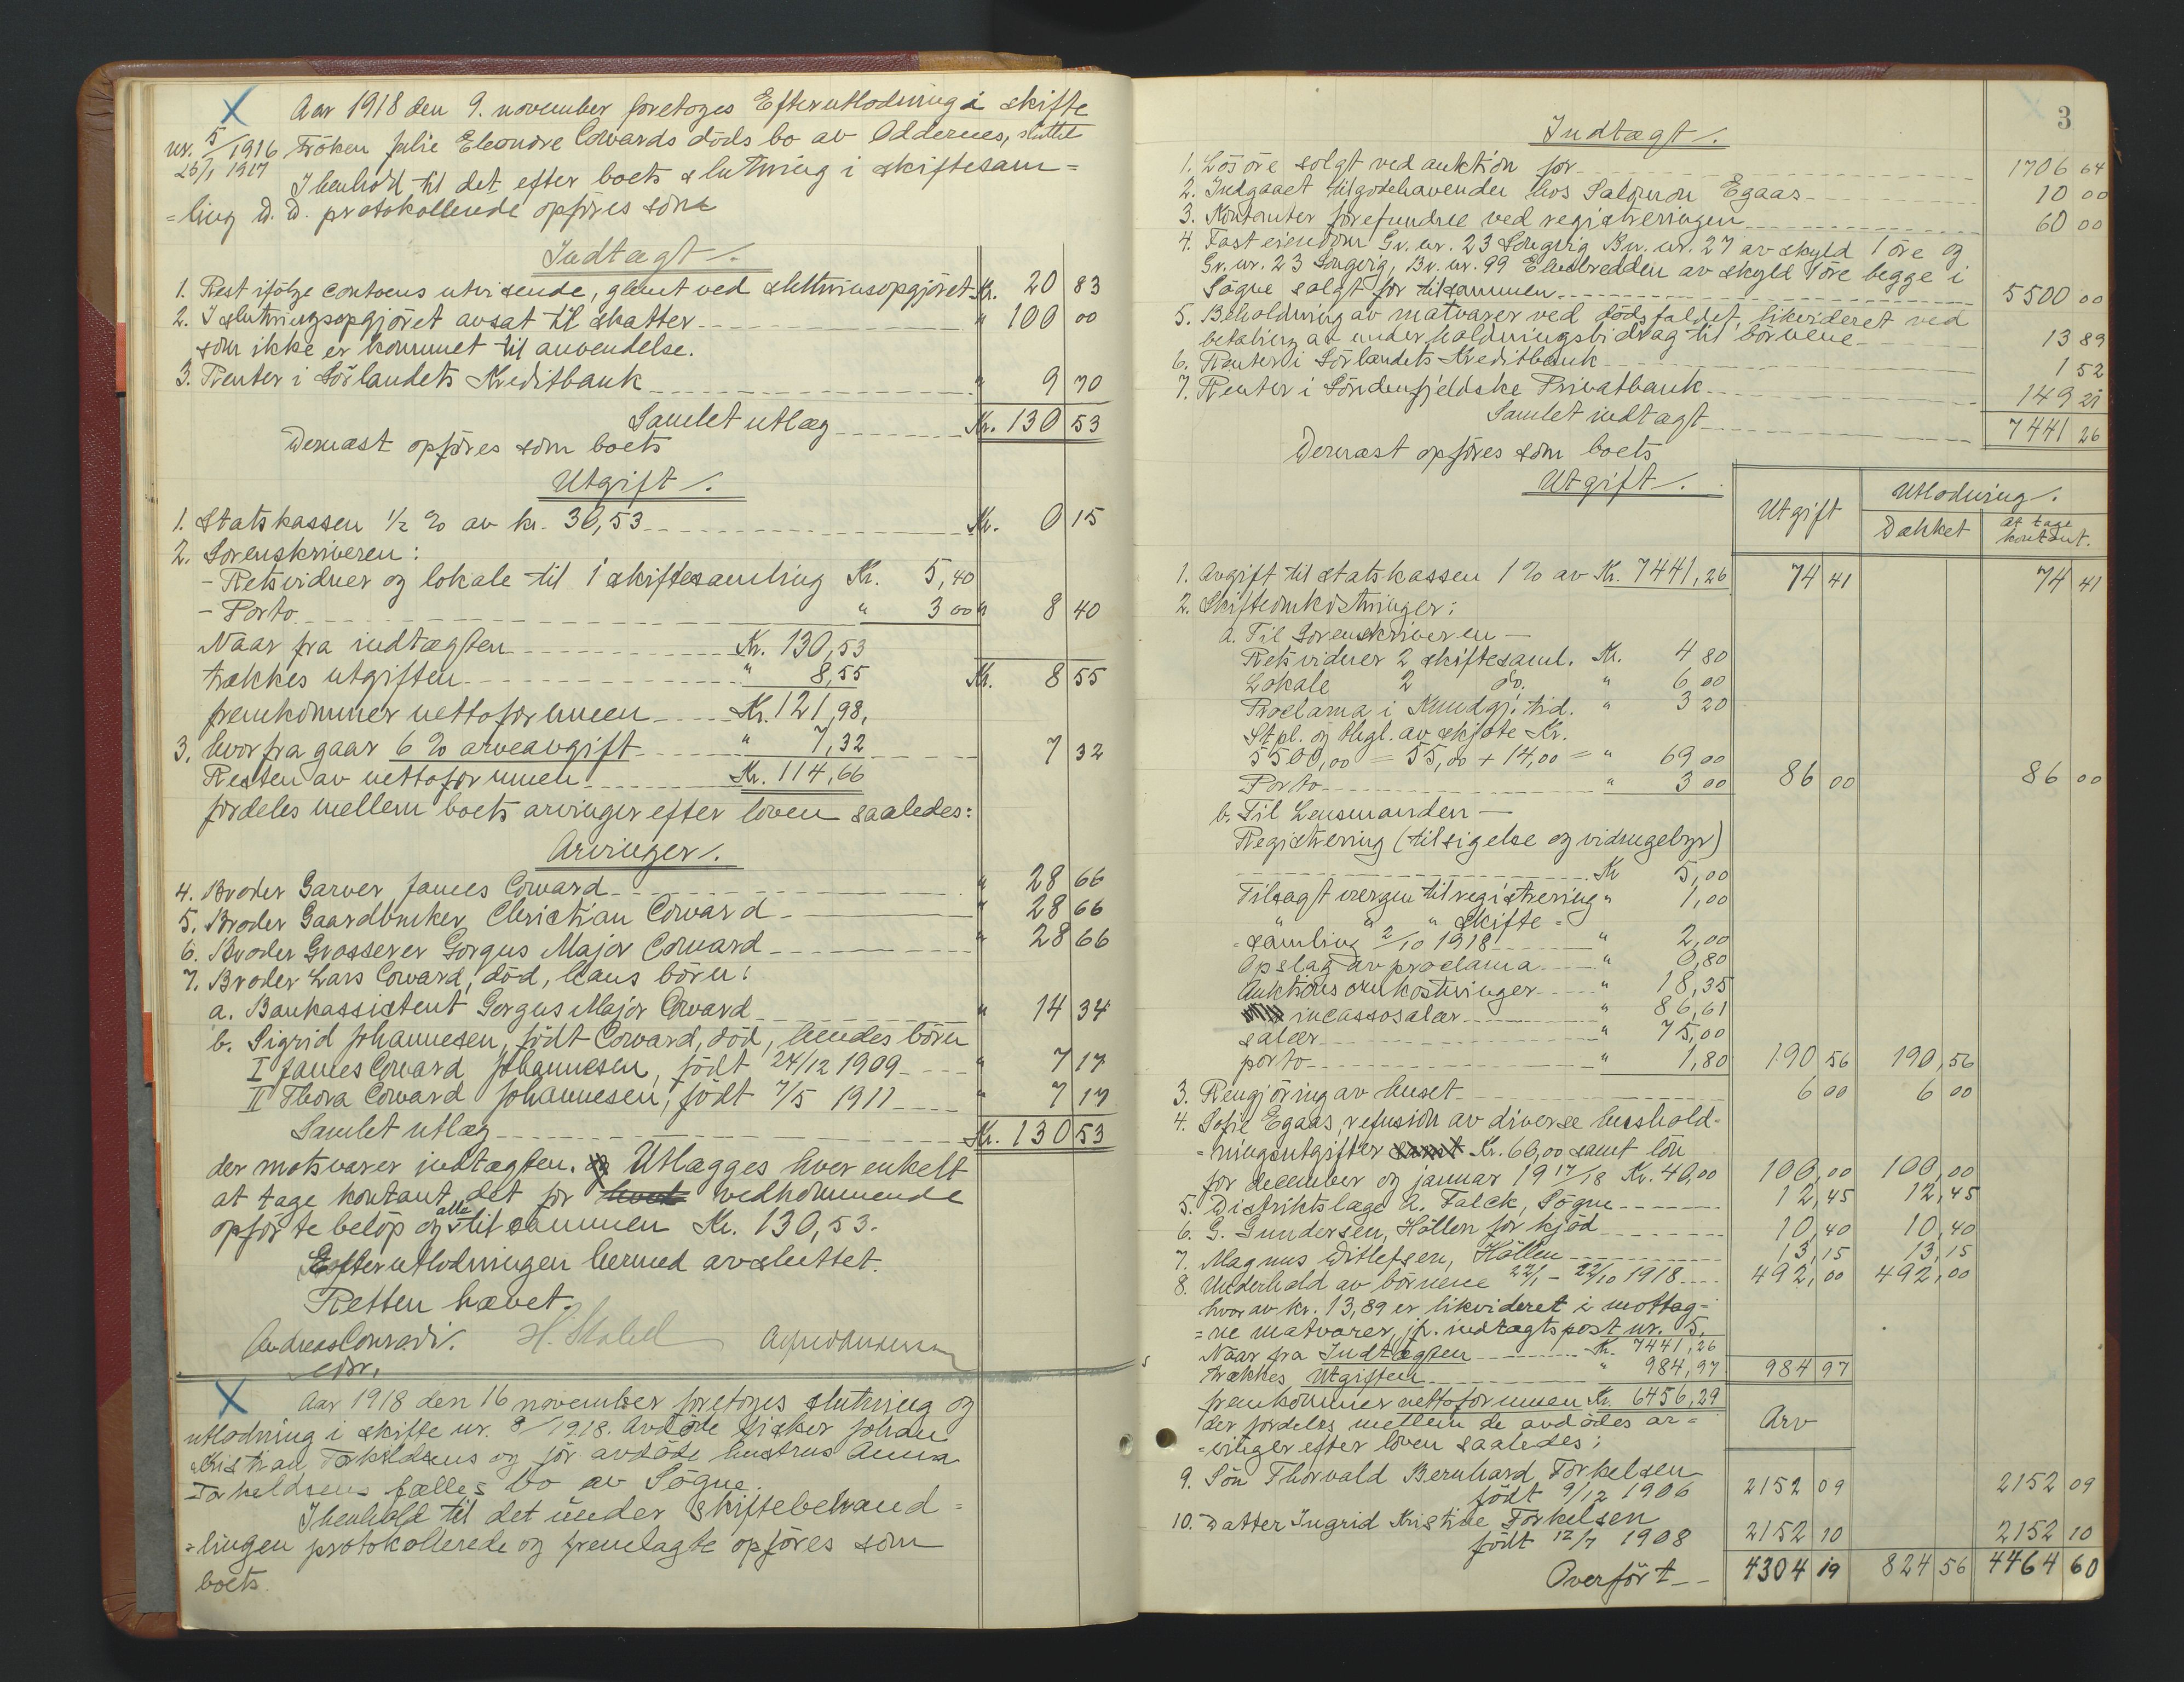 Aar 1918 den 9. november foretoges Efterutlodning i skifte
nr. 5/1916 Fröken Julie Eleonore Cowards döds bo av Oddernes, sluttet
25/1 1917
I henhold til det efter boets slutning i skiftesam=
=ling d. d. protokollerede opföres som
Indtægt.
1. Rest ifölge contoens utvisende, glemt ved slutningsopgjöret Kr. 20 83
2. I slutningsopgjöret avsat til skatter " 100 00
som ikke er kommet til anvendelse.
3. Renter i Sörlandets Kreditbank " 9 70
Samlet utlæg Kr. 130 53
Dernæst opföres som boets
Utgift.
1. Statskassen ½ % av kr. 30,53 Kr. 0 15
2. Sorenskriveren:
- Retsvidner og lokale til 1 skiftesamling Kr. 5,40
- Porto " 3 00 " 8 40
Naar fra indtægten Kr. 130,53
trækkes utgiften " 8,55 Kr. 8 55
fremkommer nettoformuen Kr. 121,98,
3. hvorfra gaar 6 % arveavgift " 7,32 7 32
Resten av nettoformuen Kr. 114,66
fordeles mellem boets arvinger efter loven saaledes:
Arvinger.
4. Broder Garver James Coward " 28 66
5. Broder Gaardbruker Christian Coward " 28 66
6. Broder Grosserer Gorgus Major Coward " 28 66
7. Broder Lars Coward, död, hans börn:
a. Bankassistent Gorgus Major Coward " 14 34
b. Sigrid Johannesen, födt Coward, död, hendes börn
I James Coward Johannesen, födt 24/12 1909 " 7 17
II Thora Coward Johannesen, födt 7/5 1911 " 7 17
Samlet utlæg Kr. 130 53
der motsvarer indtægten. og Utlægges hver enkelt
at tage kontant det for hvert vedkommende
opförte belöp og alle tilsammen Kr. 130,53.
Efterutlodningen hermed avsluttet.
Retten hævet.
Andreas Conradi. H. Stabel Alfred Andersen
edsv.
Aar 1918 den 16 november foretoges slutning og
utlodning i skifte nr. 8/1918. Avdöde fisker Johan
Kristian Torkildsens og för avdöde hustrus Anna
Torkeldsens fælles bo av Sögne.
I henhold til det under skiftebehand=
=lingen protokollerede og fremlagte opföres som
boets
3
Indtægt.
1. Lösöre solgt ved auktion for 1706 64
2. Indgaaet tilgodehavender hos Salomon Egaas 10 00
3. Kontanter forefundne ved registreringen 60 00
4. Fast eiendom Gr. nr. 23 Songvig Br. nr. 27 av skyld 1 öre og
Gr. nr. 23 Songvig, Br. nr. 99 Elvebredden av skyld 1 öre begge i
Sögne solgt for tilsammen 5500 00
5. Beholdning av matvarer ved dödsfaldet, likvideret ved
betaling av underholdningsbidrag til börnene 13 89
6. Renter i Sörlandets Kreditbank 1 52
7. Renter i Söndenfjeldske Privatbank 149 21
Samlet indtægt 7441 26
Dernæst opföres som boets
Utgift.
Utgift Utlodning.
Dækket At tage kontant.
1. Avgift til statskassen 1 % av Kr. 7441,26 74 41 74 41
2. Skifteomkostninger:
a. Til Sorenskriveren —
Retsvidner 2 skiftesaml. Kr. 4 80
Lokale 2 do. " 6 00
Proclama i Kundgj. tid. " 3 20
Stpl. og thgl. av skjöte Kr.
5500,00 = 55,00 + 14,00 = " 69 00
Porto " 3 00 86 00 86 00
b. Til Lensmanden —
Registrering (tilsigelse og vidnegebyr)
Kr 5,00
Tilsagt vergen til registrering " 1,00
" " " skifte=
=samling 2/10 1918 " 2,00
Opslag av proclama " 0,80
Auktions omkostninger " 18,35
incassosalær " 86,61
salær " 75,00
porto " 1,80 190 56 190,56
3. Rengjöring av huset 6 00 6 00
4. Sofie Egaas, refusion av diverse hushold=
=ningsutgifter samt Kr. 60,00 samt lön
for december og januar 1917/18 Kr. 40,00 100,00 100,00
5. Distriktslæge A. Falck, Sögne 12,45 12,45
6. G. Gundersen, Höllen for kjöd 10,40 10,40
7. Magnus Ditlefsen, Höllen 13,15 13,15
8. Underhold av börnene 22/1 - 22/10 1918 492,00 492,00
hvorav kr. 13,89 er likvideret i mottag=
=ne matvarer, jfr. indtægtspost nr. 5.
Naar fra Indtægten Kr. 7441,26
trækkes Utgiften " 984,97 984 97
fremkommer nettoformuen Kr. 6456,29
der fordeles mellem de avdödes ar= Arv
=vinger efter loven saaledes:
9. Sön Thorvald Bernhard Torkelsen
födt 9/12 1906 2152 09 2152 09
10. Datter Ingrid Kristine Torkelsen
födt 12/7 1908 2152 10 2152 10
Overfört 4304 19 824 56 4464 60